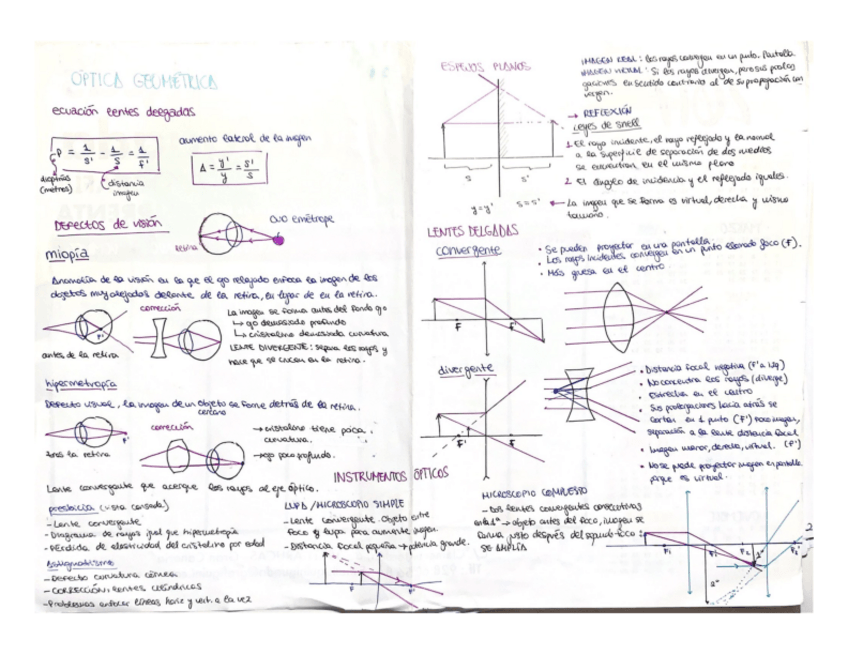 ÓPTICA GEOMÉTRICA
ecuación lentes delgadas
P = 1/s' - 1/s = 1/f'
dioptrías (metros)
distancia imagen
aumento lateral de la imagen
A = y'/y = s'/s
Defectos de visión
ojo emétrope
retina
miopía
Anomalía de la visión en la que el ojo relajado enfoca la imagen de los
objetos muy alejados delante de la retina, en lugar de en la retina.
corrección
F'
antes de la retina
La imagen se forma antes del fondo ojo
↳ ojo demasiado profundo
↳ cristalino demasiada curvatura
LENTE DIVERGENTE: separa los rayos y
hace que se crucen en la retina.
hipermetropía
Defecto visual, la imagen de un objeto cercano se forme detrás de la retina.
F'
tras la retina
corrección
→ cristalino tiene poca
curvatura.
→ ojo poco profundo.
Lente convergente que acerque los rayos al eje óptico.
presbicia (vista cansada)
- Lente convergente
- Diagrama de rayos igual que hipermetropía
- Pérdida de elasticidad del cristalino por edad
Astigmatismo
- Defecto curvatura córnea
- CORRECCIÓN: lentes cilíndricas
- Problemas enfocar líneas horiz y vert. a la vez
INSTRUMENTOS ÓPTICOS
LUPA / MICROSCOPIO SIMPLE
- Lente convergente. Objeto entre
foco y lupa para aumente imagen.
- Distancia focal pequeña → potencia grande.
F F'
MICROSCOPIO COMPUESTO
- Dos lentes convergentes consecutivas
→ objeto antes del foco, imagen se
forma justo después del foco:
SE AMPLÍA
F₁ F₁' F₂ 1ª F₂'
2ª
ESPEJOS PLANOS
s s'
y=y' s=s'
IMAGEN REAL: los rayos convergen en un punto. Pantalla
IMAGEN VIRTUAL: Si los rayos divergen, pero sus prolon
gaciones en sentido contrario al de su propagación con
vergen.
→ REFLEXIÓN
Leyes de Snell
1. El rayo incidente, el rayo reflejado y la normal
a la superficie de separación de dos medios
se encuentran en el mismo plano
2. El ángulo de incidencia y el reflejado iguales.
← La imagen que se forma es virtual, derecha y mismo
tamaño.
LENTES DELGADAS
convergente
F F'
• Se pueden proyectar en una pantalla.
• Los rayos incidentes convergen en un punto llamado foco (F).
• Más gruesa en el centro.
divergente
F' F
• Distancia focal negativa
• No concentra los rayos (diverge)
• Estrecha en el centro
• Sus prolongaciones hacia atrás se
cortan en 1 punto (F') foco imagen,
separación a la lente distancia focal (f')
• Imagen menor, derecha, virtual.
• No se puede proyectar imagen en pantalla
porque es virtual.